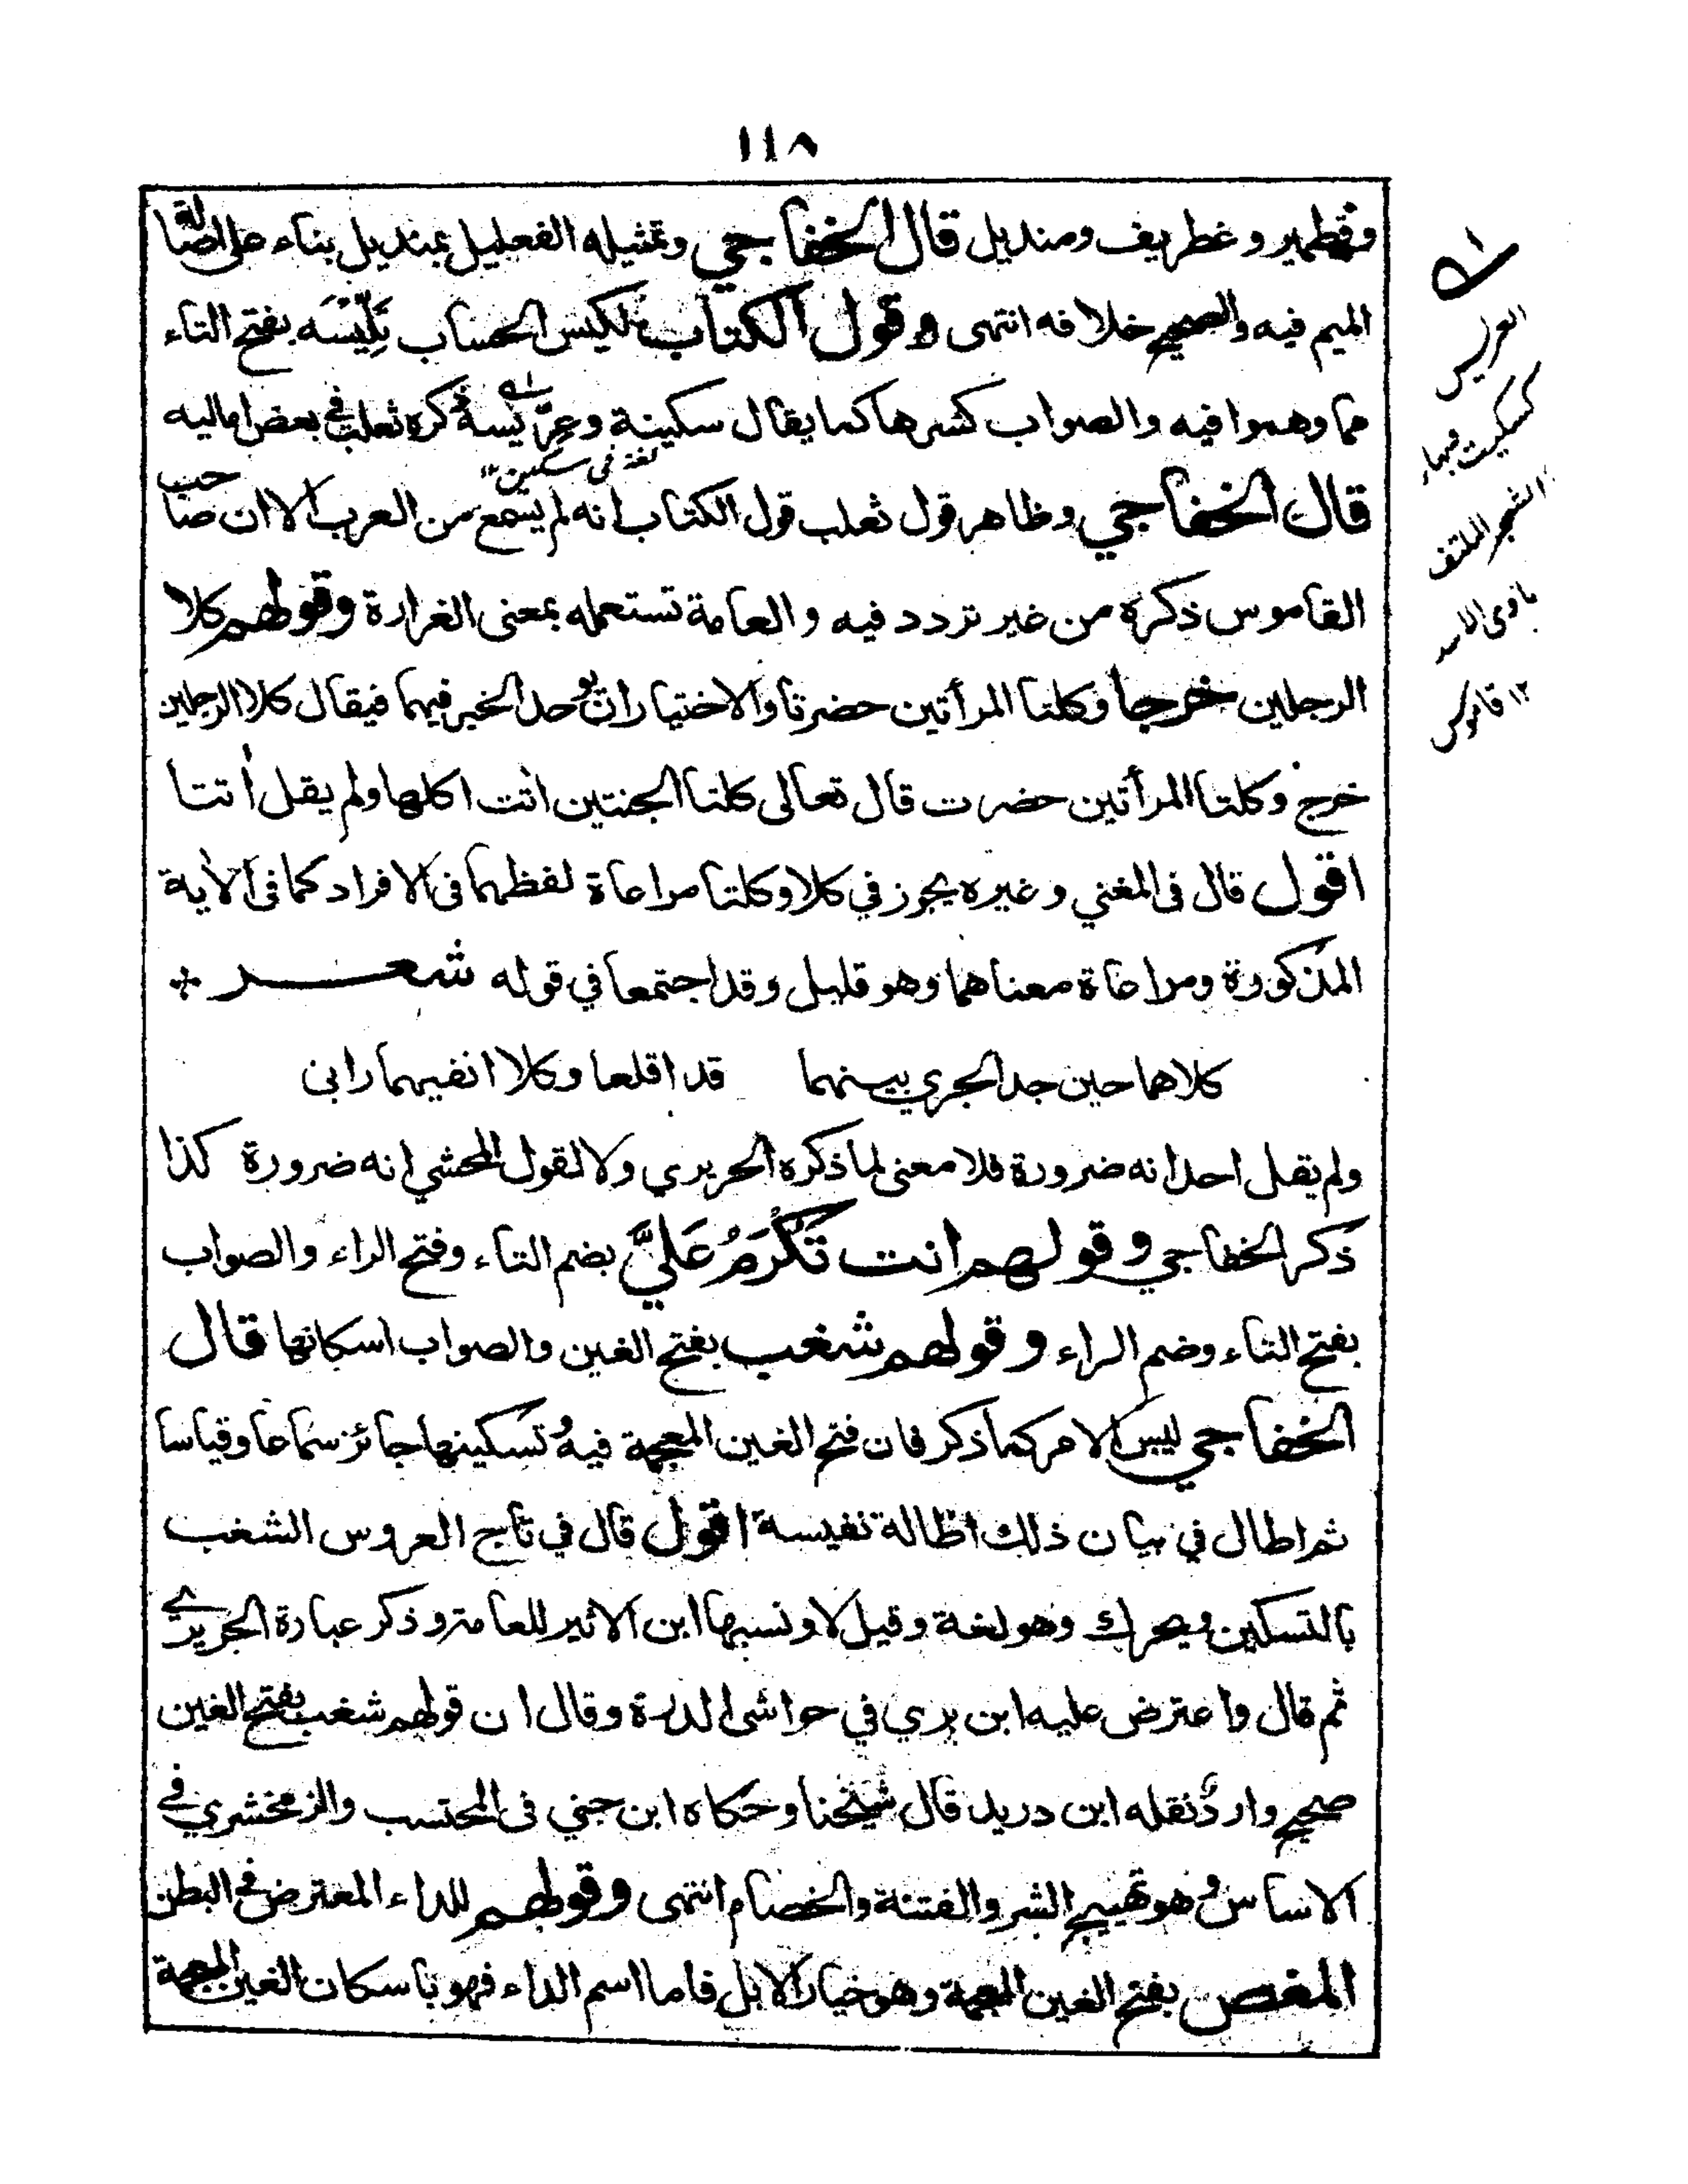 ١١٨
وقطمير وغطريف ومنديل قال الخفاجي وتمثيله الفعليل بمنديل بناء على اصالة
الميم فيه والصحيح خلافه انتهى وقول الكتاب لكيس الحساب تَلِّيسَه بفتح التاء
مما وهموا فيه والصواب كسرها كما يقال سكينة وعِرِّيسة ذكره ثعلب في بعض اماليه
لغة فى سكين ١٢
قال الخفاجي وظاهر قول ثعلب قول الكتاب انه لم يسمع من العرب الا ان صاحب
القاموس ذكره من غير تردد فيه والعامة تستعمله بمعنى الغرارة وقولهم كلا
الرجلين خرجا وكلتا المرأتين حضرتا والاختيار ان يوحد الخبر فيهما فيقال كلا الرجلين
خرج وكلتا المرأتين حضرت قال تعالى كلتا الجنتين اتت اكلها ولم يقل أتتا
اقول قال فى المغني وغيره يجوز في كلا وكلتا مراعاة لفظهما فى الافراد كما فى الآية
المذكورة ومراعاة معناهما وهو قليل وقد اجتمعا في قوله شعر
كلاهما حين جد الجري بينهما قد اقلعا وكلا انفيهما رابى
ولم يقل احد انه ضرورة فلا معنى لما ذكره الحريري ولا لقول المحشي انه ضرورة كذا
ذكر الخفاجي وقولهم انت تَكْرُمُ عَلَيَّ بضم التاء وفتح الراء والصواب
بفتح التاء وضم الراء وقولهم شغب بفتح الغين والصواب اسكانها قال
الخفاجي ليس الامر كما ذكر فان فتح الغين المعجمة فيه وتسكينها جائز سماعا وقياسا
ثم اطال في بيان ذلك اطالة نفيسة اقول قال في تاج العروس الشغب
بالتسكين ويحرك وهو لغة وقيل لا ونسبها ابن الاثير للعامة وذكر عبارة الحريري
ثم قال واعترض عليه ابن بري في حواشى الدرة وقال ان قولهم شغب بفتح الغين
صحيح وارد نقله ابن دريد قال شيخنا وحكاه ابن جني فى المحتسب والزمخشري في
الاساس وهو تهييج الشر والفتنة والخصام انتهى وقولهم للداء المعترض في البطن
المغص بفتح الغين المعجمة وهو خيار الابل فاما اسم الداء فهو باسكان الغين المعجمة
العريس
كسكيت وبهاء
الشجر الملتف
ماوى الاسد
١٢ قاموس